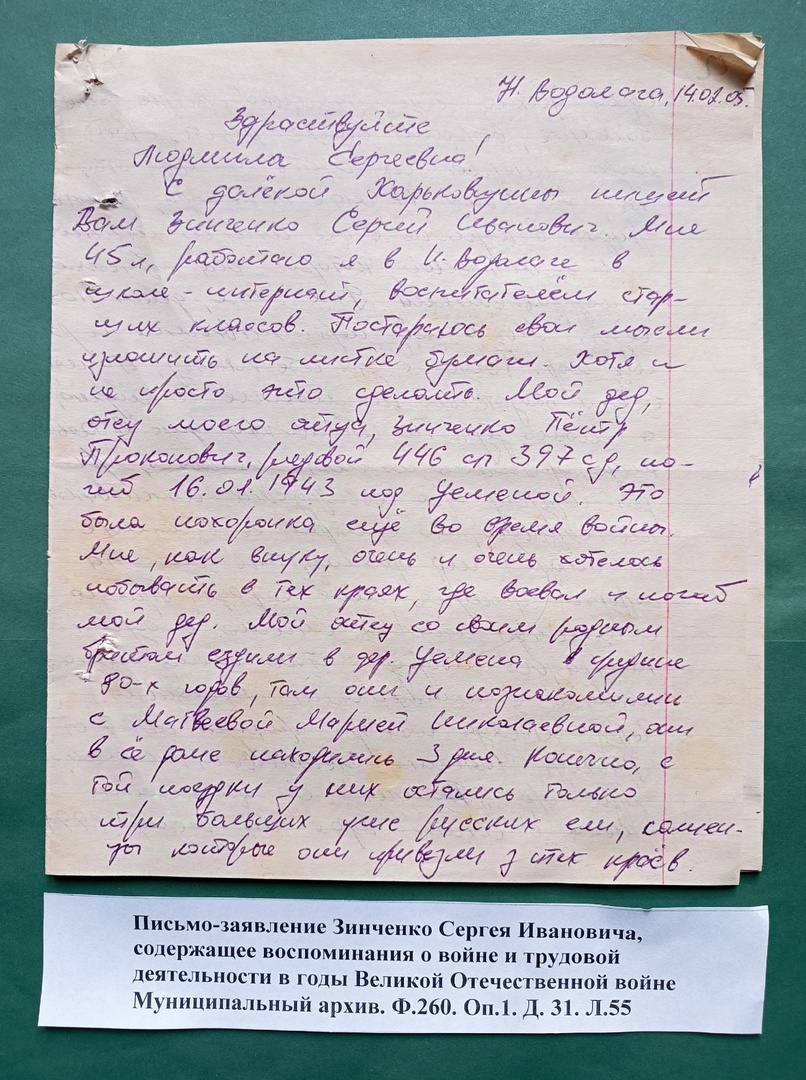 Н. Водолага, 14.02.05.
Здраствуйте
Людмила Сергеевна!
С далёкой Харьковщины пишет
Вам Зинченко Сергей Иванович. Мне
45 л, работаю я в Н. Водолаге в
школе-интернат, воспитателем стар-
ших классов. Постараюсь свои мысли
изложить на листке бумаги. Хотя и
не просто это сделать. Мой дед,
отец моего отца, Зинченко Пётр
Прокопович, рядовой 446 сп 397 сд, по-
гиб 16.01.1943 под Уеменой. Это
была похоронка ещё во время войны.
Мне, как внуку, очень и очень хотелось
побывать в тех краях, где воевал и погиб
мой дед. Мой отец со своим родным
братом ездили в дер. Уемена в средине
80-х годов, там они и познакомились
с Матвеевой Марией Николаевной, они
в её доме находились 3 дня. Конечно, с
той поездки у них остались только
три больших уже русских ели, сажен-
цы которые они привезли з тех краёв.
Письмо-заявление Зинченко Сергея Ивановича,
содержащее воспоминания о войне и трудовой
деятельности в годы Великой Отечественной войне
Муниципальный архив. Ф.260. Оп.1. Д. 31. Л.55